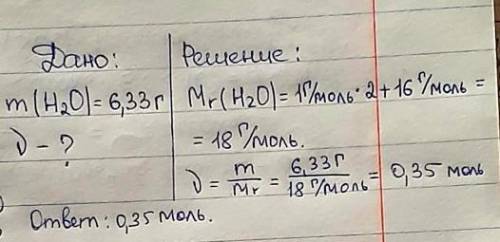 Дано:
Решение:
m(H₂O)=6,33г
Mr(H₂O)=1г/моль·2+16г/моль=
ν-?
=18г/моль.
ν=m/Mr=6,33г/18г/моль=0,35 моль
Ответ: 0,35 моль.